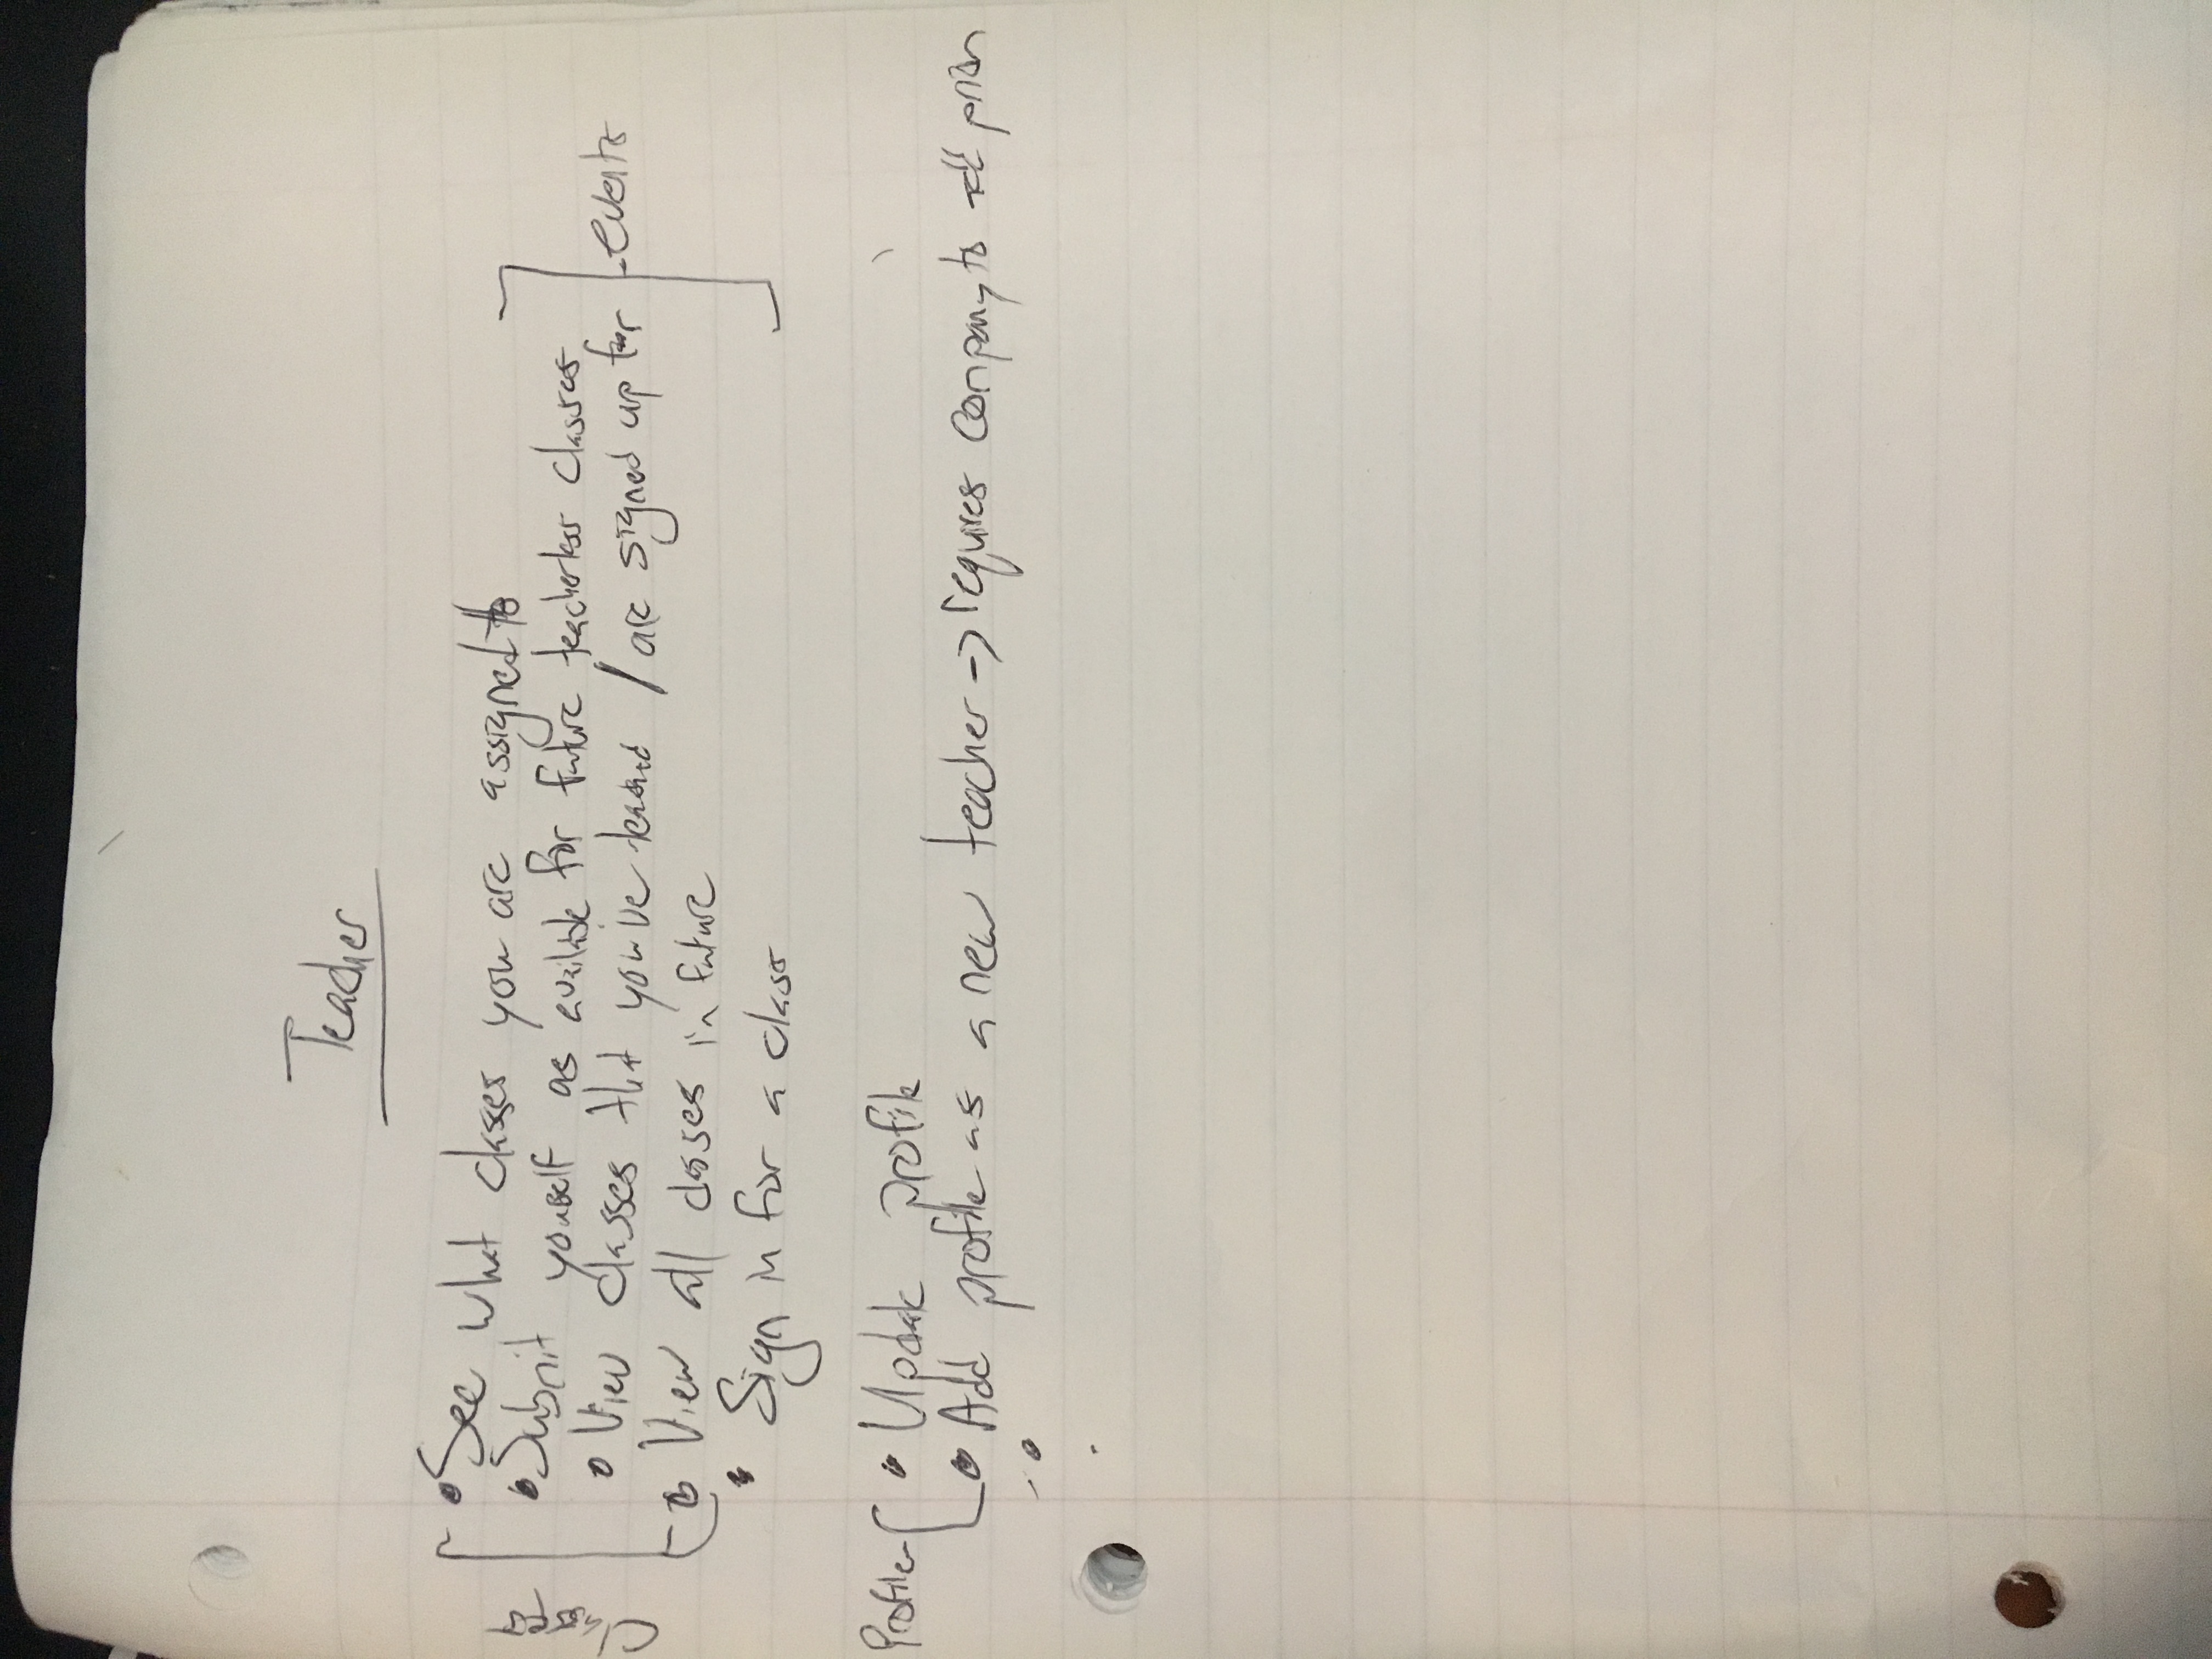 Teacher
Classes
• See what classes you are assigned to
• Submit yourself as available for future teacherless classes
• View classes that you've teached / are signed up for
- events
• View all classes in future
• Sign in for a class
Profile
• Update profile
• Add profile as a new teacher -> requires company to add prior